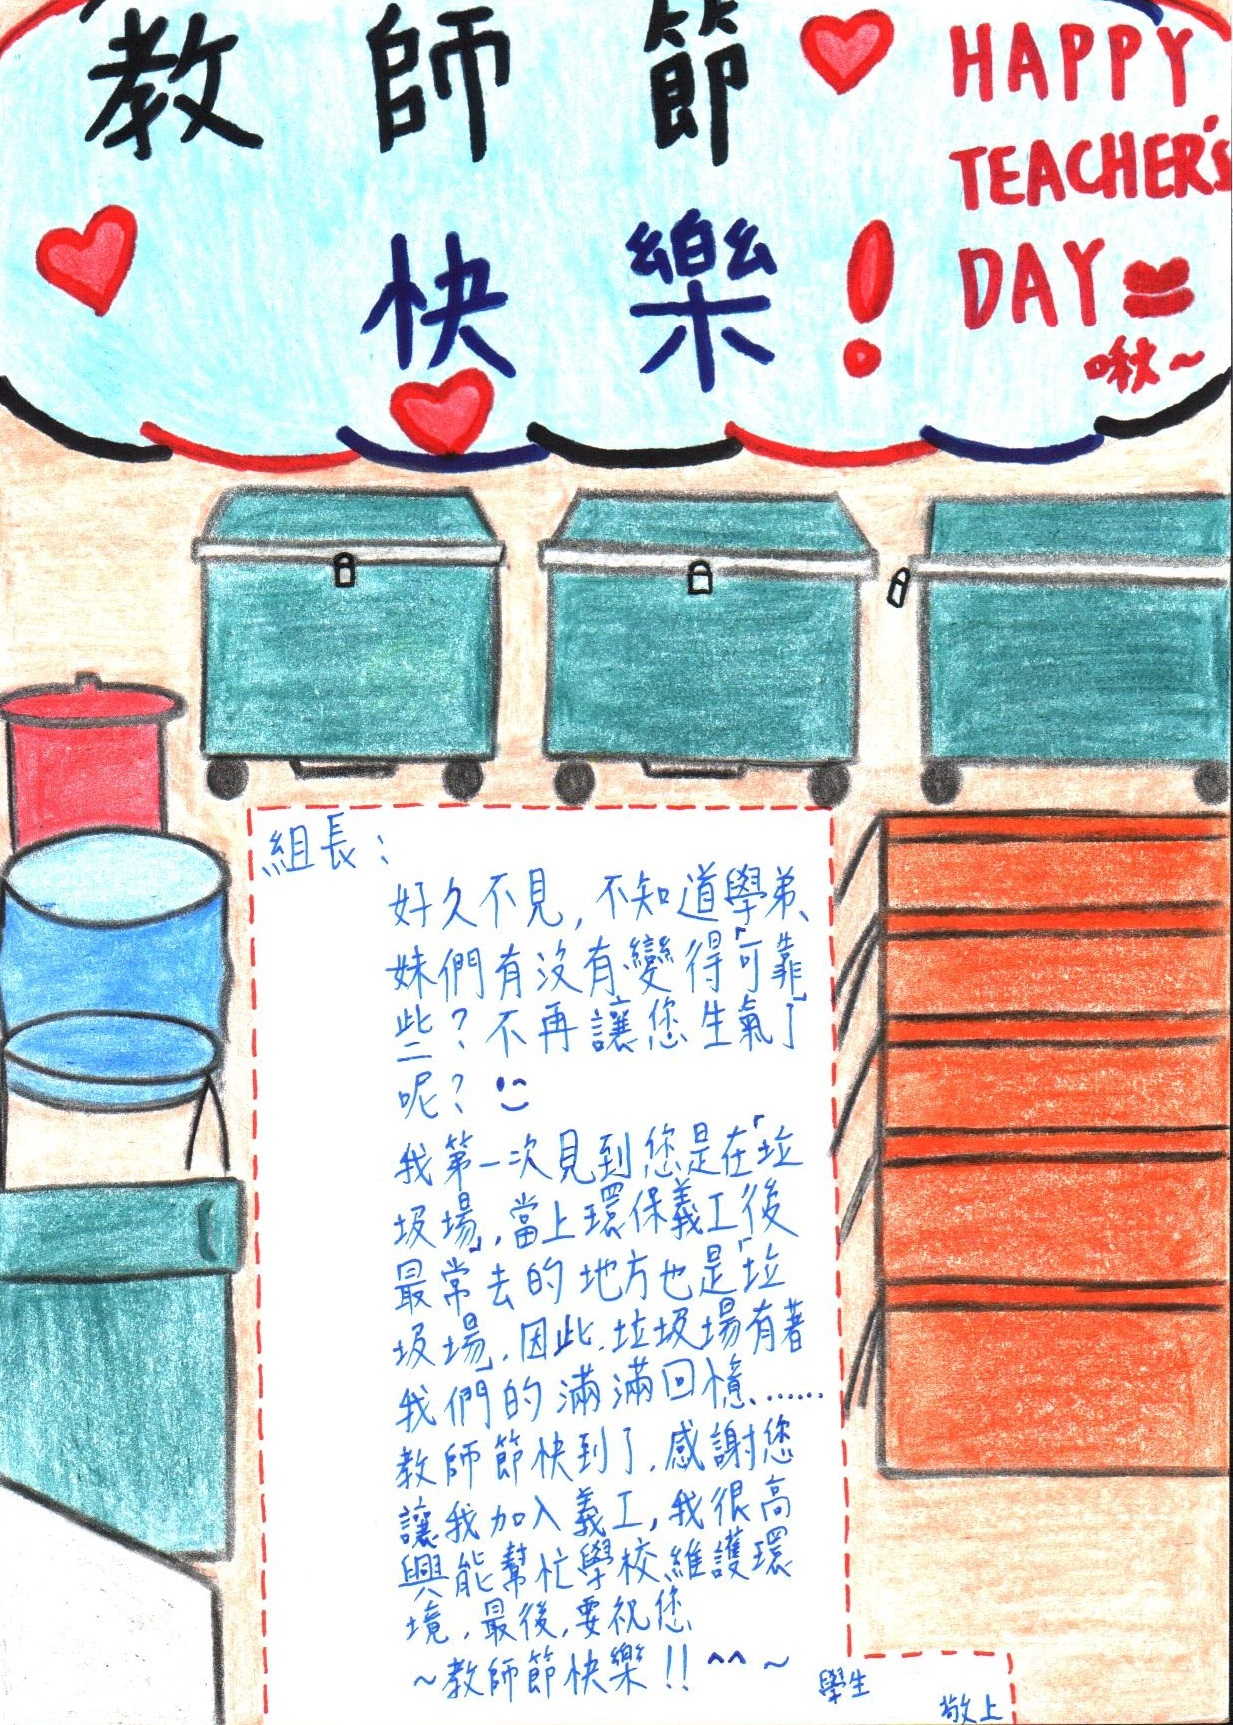 教師節
快樂！
HAPPY
TEACHER'S
DAY
啾~
組長：
好久不見，不知道學弟、
妹們有沒有變得「可靠」
些？不再讓您生氣了
呢？
我第一次見到您是在「垃
圾場」，當上環保義工後
最常去的地方也是「垃
圾場」，因此，垃圾場有著
我們的滿滿回憶……
教師節快到了，感謝您
讓我加入義工，我很高
興能幫忙學校維護環
境，最後，要祝您
~教師節快樂!! ^^ ~
學生
敬上